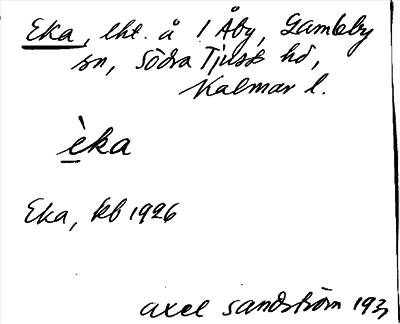 Eka, lht. å 1 Åby, Gamleby
sn, Södra Tjusts hd,
Kalmar l.
èka
Eka, kb 1926
Axel Sandström